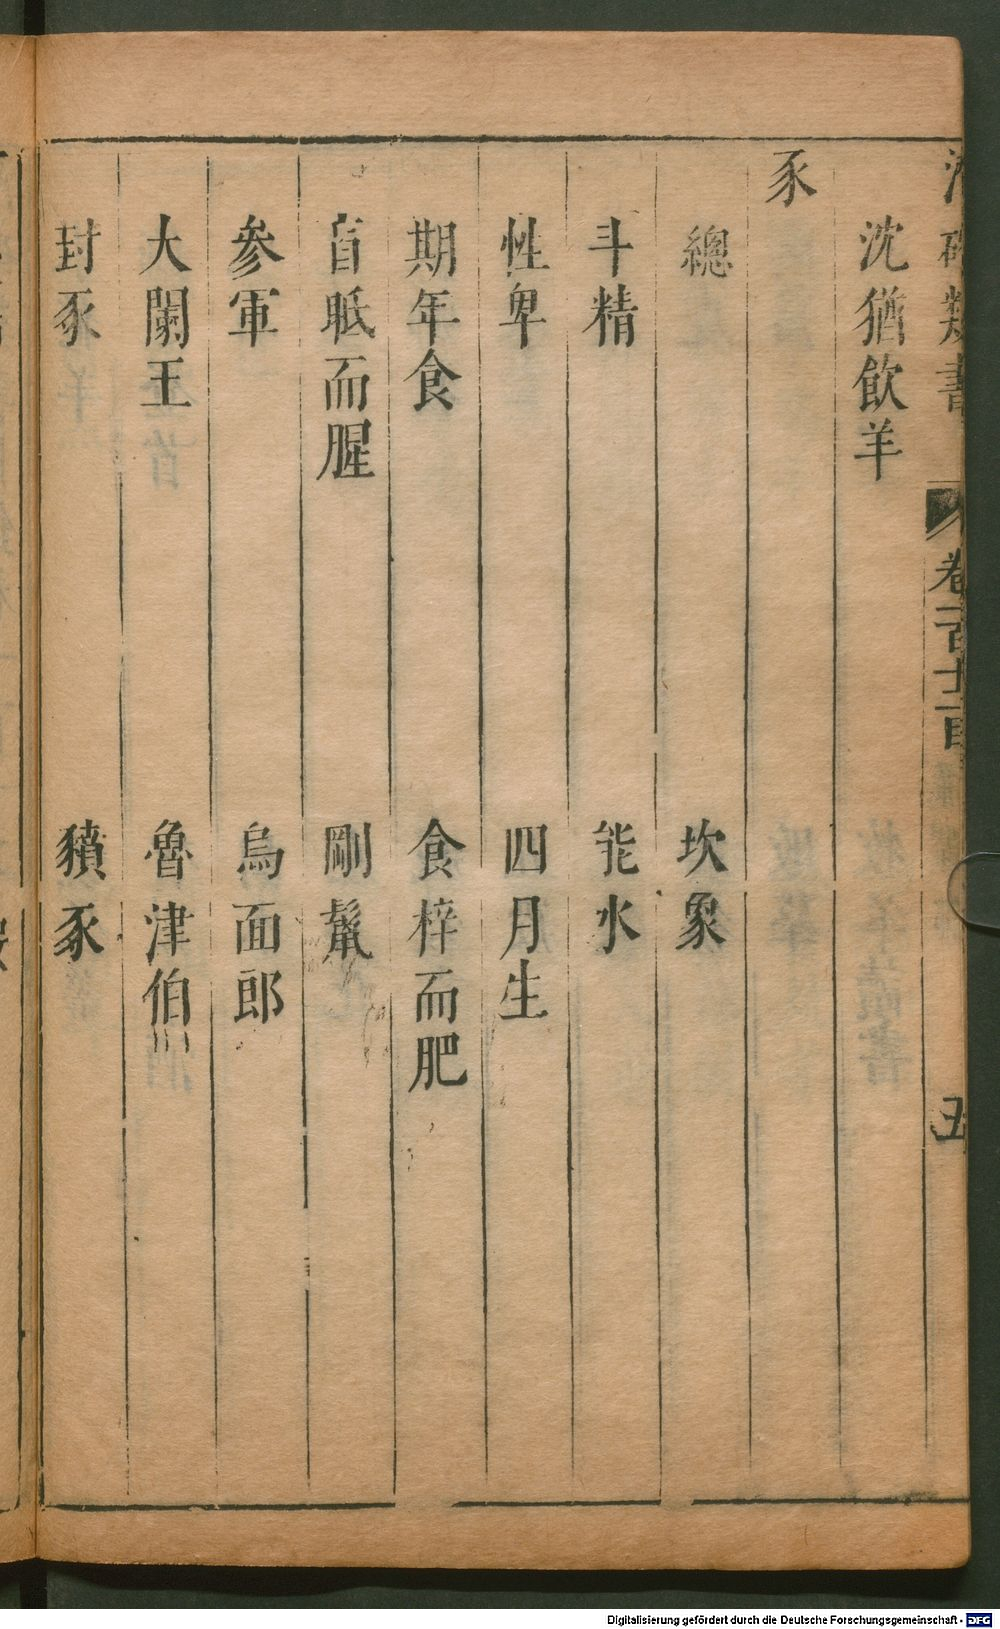 類書 卷一百十二目 五
沈猶飲羊
豕
總 坎象
斗精 能水
性卑 四月生
期年食 食梓而肥
盲眡而腥 剛鬣
參軍 烏面郎
大蘭王 魯津伯
封豕 豶豕
Digitalisierung gefördert durch die Deutsche Forschungsgemeinschaft - DFG